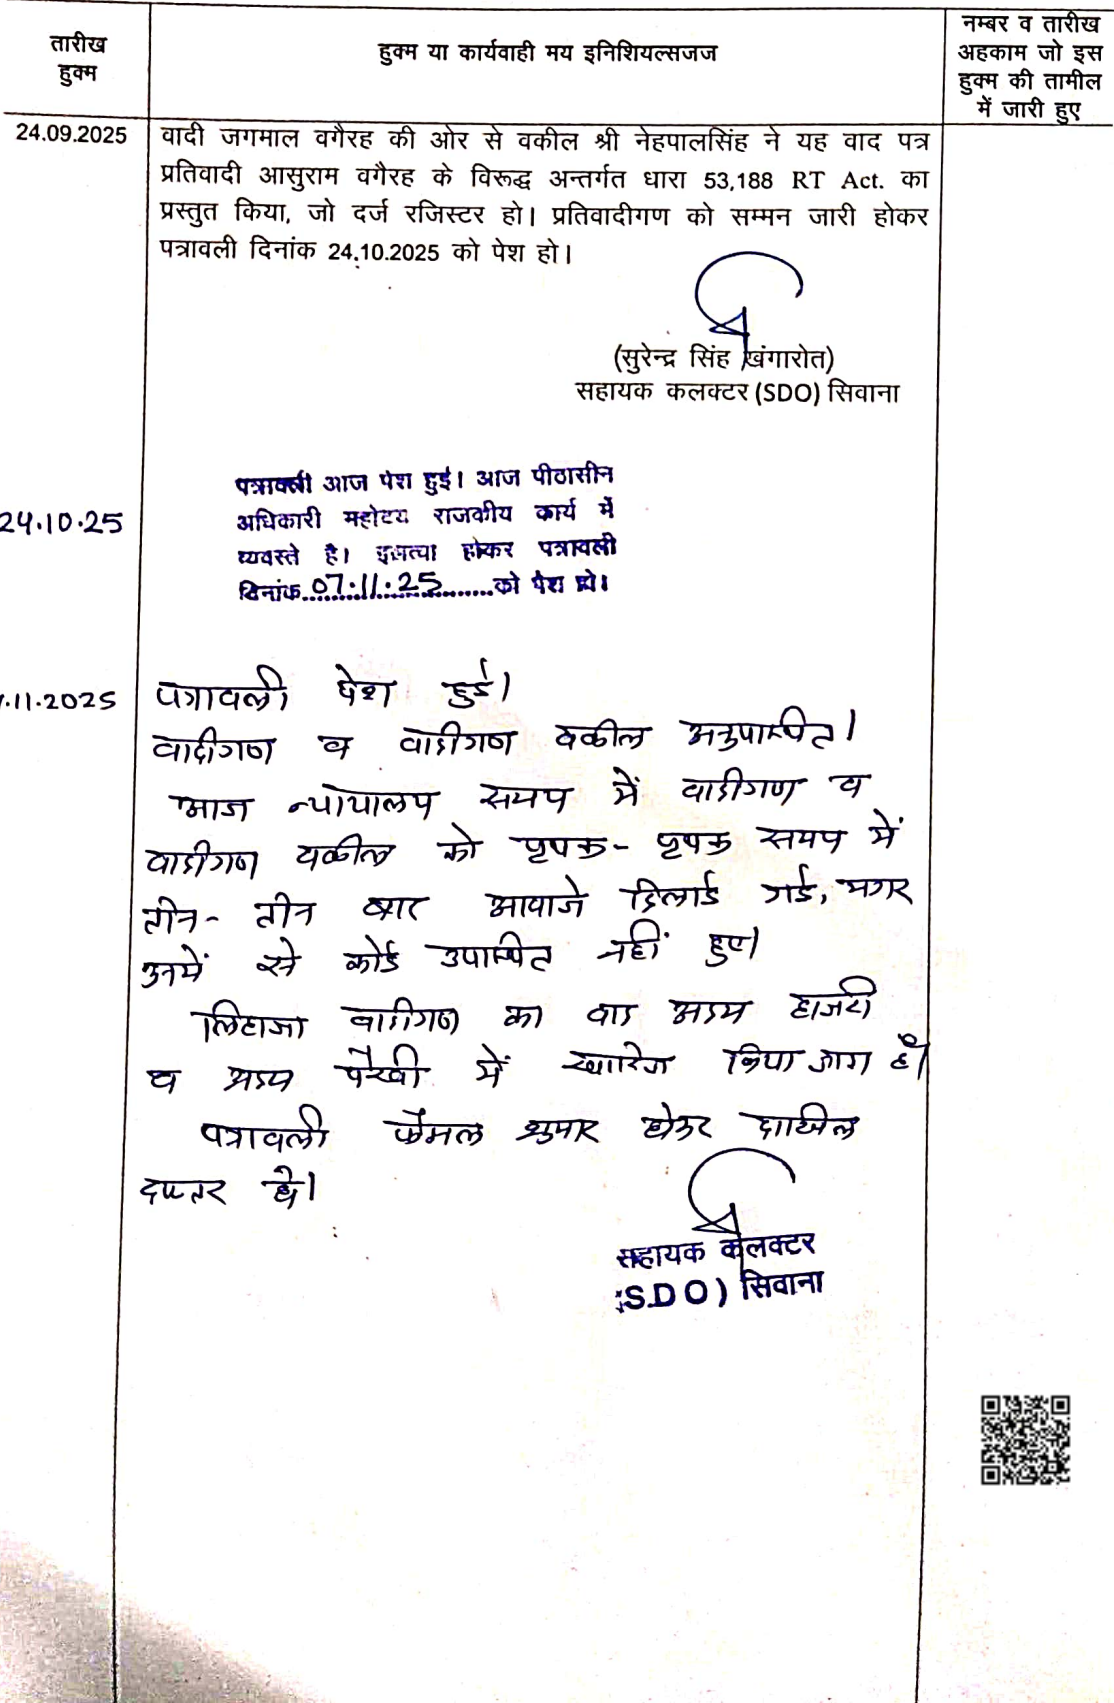 तारीख
हुक्म
हुक्म या कार्यवाही मय इनिशियल्सजज
नम्बर व तारीख
अहकाम जो इस
हुक्म की तामील
में जारी हुए
24.09.2025
वादी जगमाल वगैरह की ओर से वकील श्री नेहपालसिंह ने यह वाद पत्र
प्रतिवादी आसुराम वगैरह के विरूद्ध अन्तर्गत धारा 53,188 RT Act. का
प्रस्तुत किया, जो दर्ज रजिस्टर हो। प्रतिवादीगण को सम्मन जारी होकर
पत्रावली दिनांक 24.10.2025 को पेश हो।
(सुरेन्द्र सिंह खंगारोत)
सहायक कलक्टर (SDO) सिवाना
24.10.25
पत्रावली आज पेश हुई। आज पीठासीन
अधिकारी महोदय राजकीय कार्य में
व्यवस्ते है। होकर पत्रावली
दिनांक 07.11.25 को पेश हो।
.11.2025
पत्रावली पेश हुई।
वादीगण व वादीगण वकील अनुपस्थित।
आज न्यायालय समय में वादीगण व
वादीगण वकील को पृथक - पृथक समय में
तीन - तीन बार आवाजे दिलाई गई, मगर
उनमें से कोई उपस्थित नहीं हुए।
लिहाजा वादीगण का वाद अदम हाजरी
व अदम पैरवी में खारिज किया जाता है।
पत्रावली फैसल शुमार होकर दाखिल
दफ्तर हो।
सहायक कलक्टर
(S.D O) सिवाना